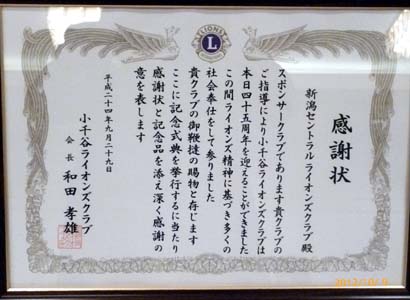 感謝状
新潟セントラルライオンズクラブ殿
スポンサークラブであります貴クラブの
ご指導により小千谷ライオンズクラブは
本日四十五周年を迎えることができました
この間ライオンズ精神に基づき多くの
社会奉仕をして参りました
貴クラブの御鞭撻の賜物と存じます
ここに記念式典を挙行するに当たり
感謝状と記念品を添え深く感謝の
意を表します
平成二十四年九月二十九日
小千谷ライオンズクラブ
会長 和田孝雄
LIONS
L